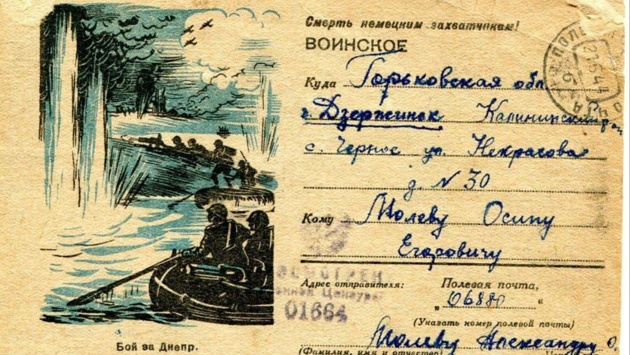 Смерть немецким захватчикам!
ВОИНСКОЕ
Куда Горьковская обл
г. Дзержинск Калининский
с. Черное ул. Некрасова
д N 30
Кому Молеву Осипу
Егоровичу
ПРОСМОТРЕНО
Военной Цензурой
01664
Адрес отправителя: Полевая почта,
„06880“
(Указать номер полевой почты)
Молеву Александру О.
(Фамилия, имя и отчество)
Бой за Днепр.